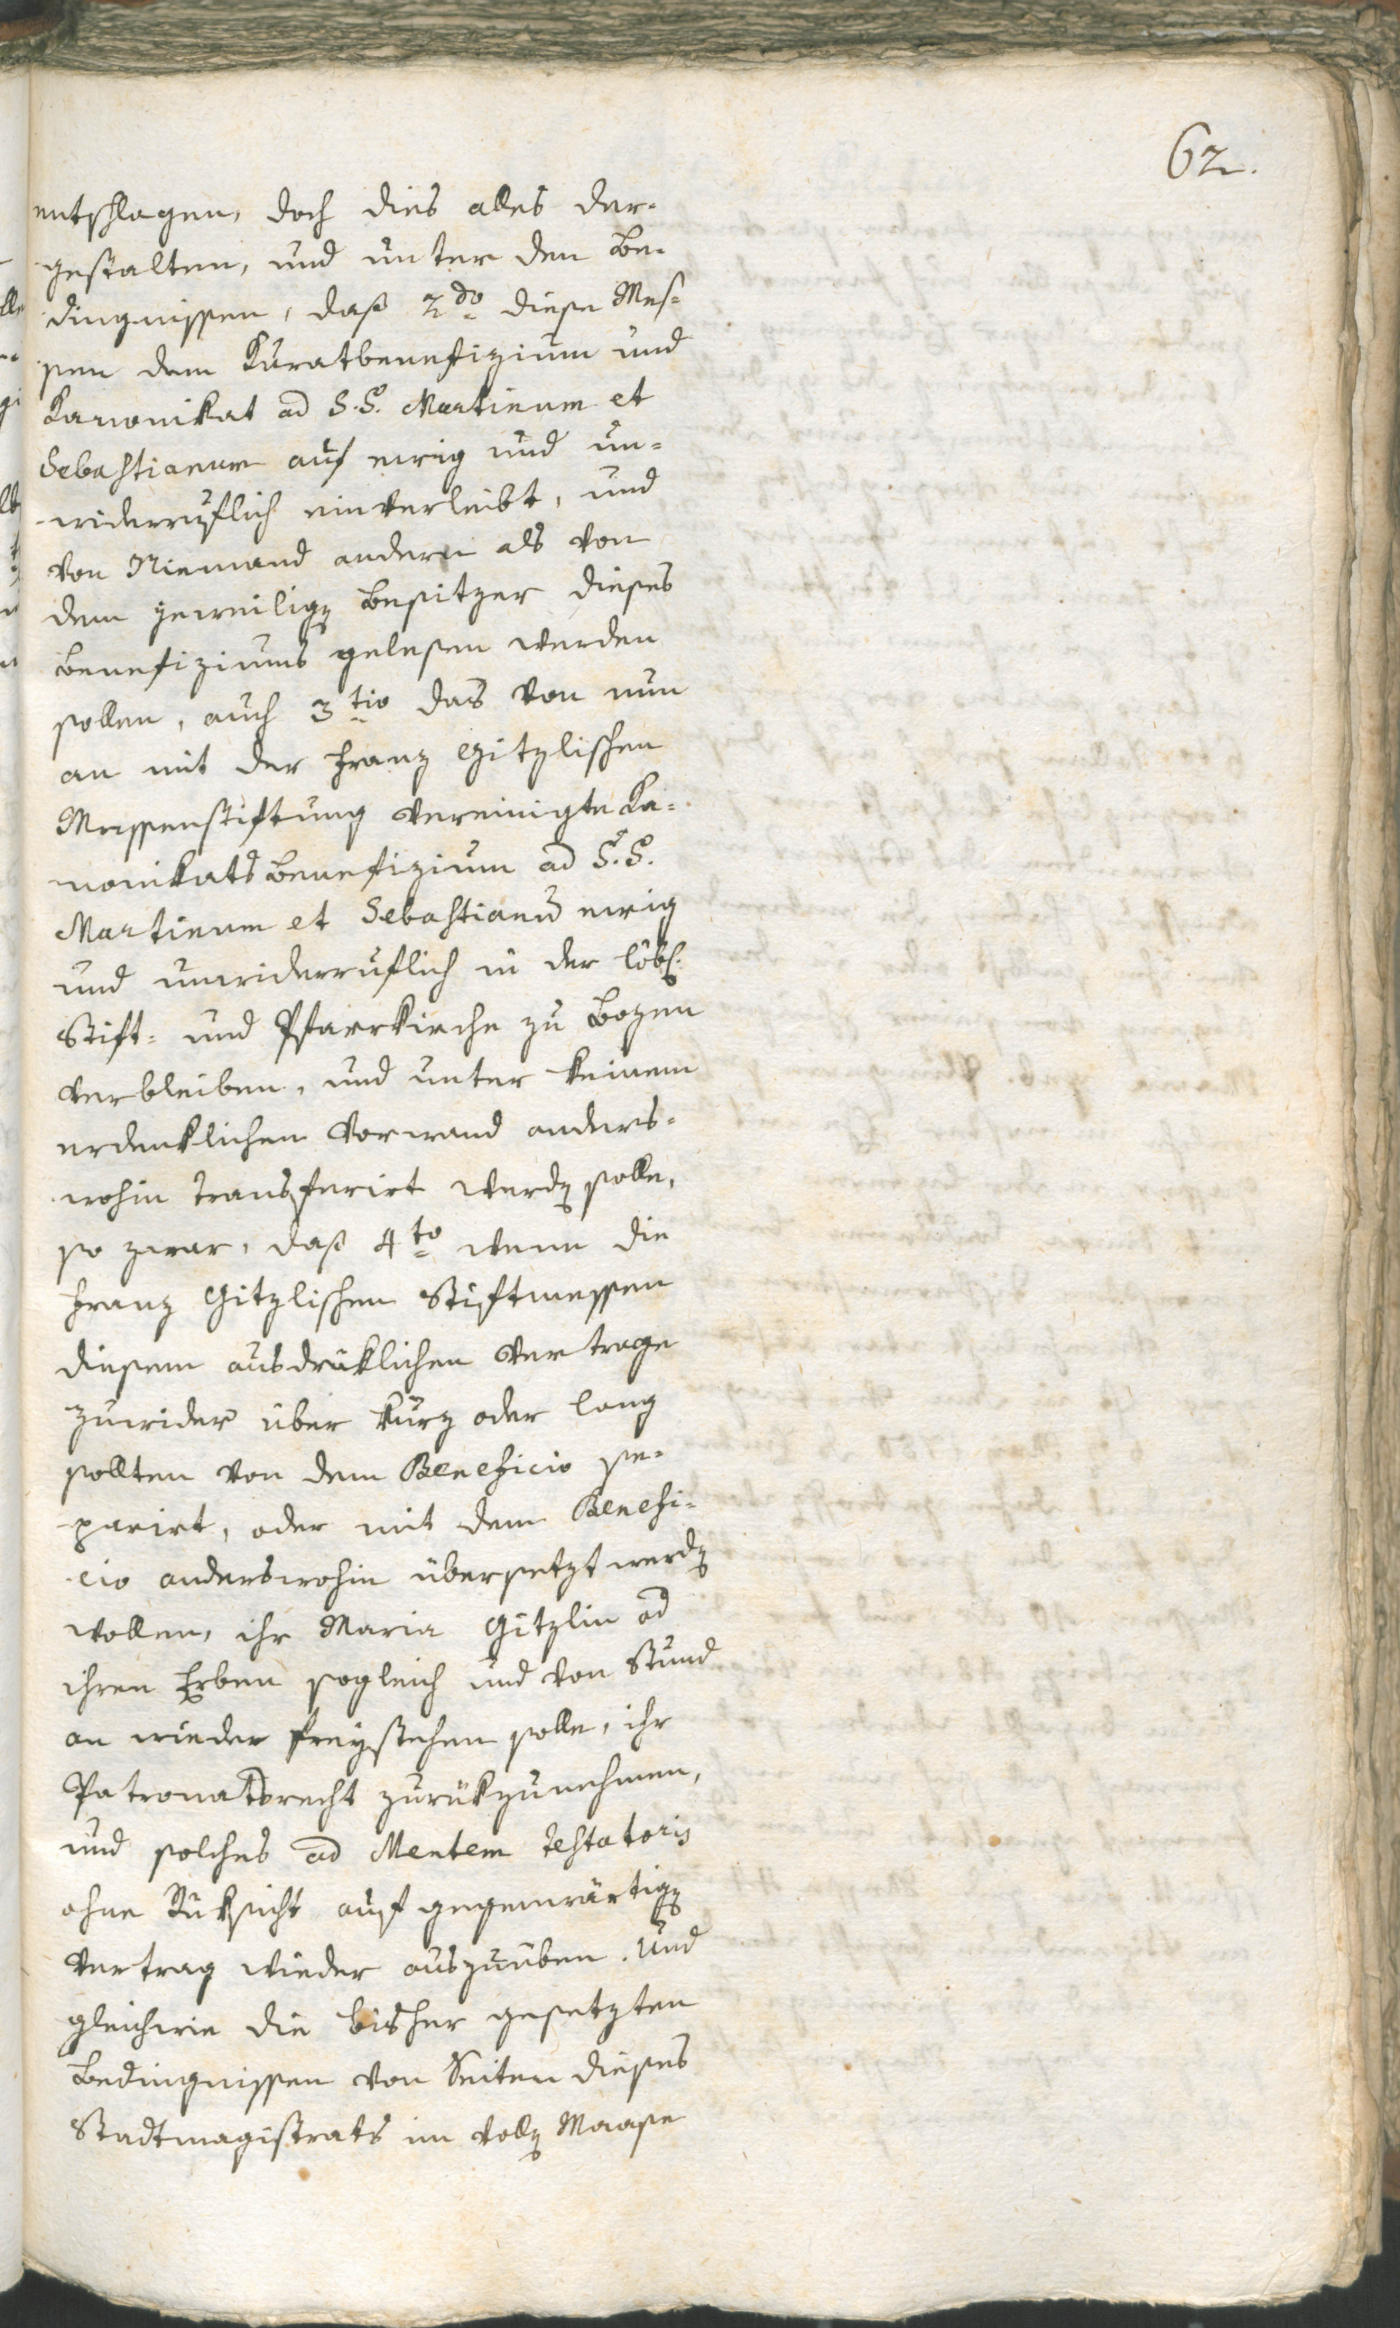 62.
entschlagen, doch dies alles der-
gestalten, und unter den Be-
dingnissen, daß 2do diese Mes-
sen dem Kuratbenefizium und
Kanonikat ad S.S. Martinum et
Sebastianum auf ewig und un-
widerruflich einverleibt, und
von Niemand andern als von
dem jeweilig Besitzer dieses
Benefiziums gelesen werden
sollen, auch 3tio das von nun
an mit der Franz Gitzlischen
Messenstiftung vereinigte Ka-
nonikats Benefizium ad S.S.
Martinum et Sebastianū ewig
und unwiderruflich in der löbl.
Stift- und Pfarrkirche zu Bozen
verbleiben, und unter keinem
erdenklichen Vorwand anders-
wohin transferirt werdn solle,
so zwar, daß 4to wenn die
Franz Gitzlischen Stiftmessen
diesem ausdrüklichen Vertrage
zuwider über kurz oder lang
sollten von dem Beneficio se-
parirt, oder mit dem Benefi-
cio anderswohin übersetzt werdn
wollen, ihr Maria Gitzlin od
ihren Erben sogleich und von Stund
an wieder freystehen solle, ihr
Patronatsrecht zurükzunehmen,
und solches ad Mentem Testatoris
ohne Rüksicht auf gegenwärtign
Vertrag wieder auszuüben. Und
gleichwie die bisher gesetzten
Bedingnissen von Seiten dieses
Stadtmagistrats im volln Maase